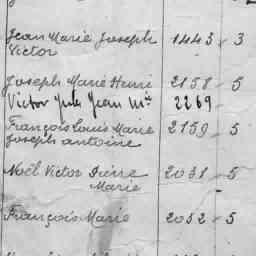 Jean Marie Joseph 1443 - 3
Victor
Joseph Marie Henri 2158 - 5
Victor Jules Jean Mie 2269
François Louis Marie 2159 - 5
Joseph Antoine
Noël Victor Pierre 2031 - 5
Marie
François Marie 2052 - 5